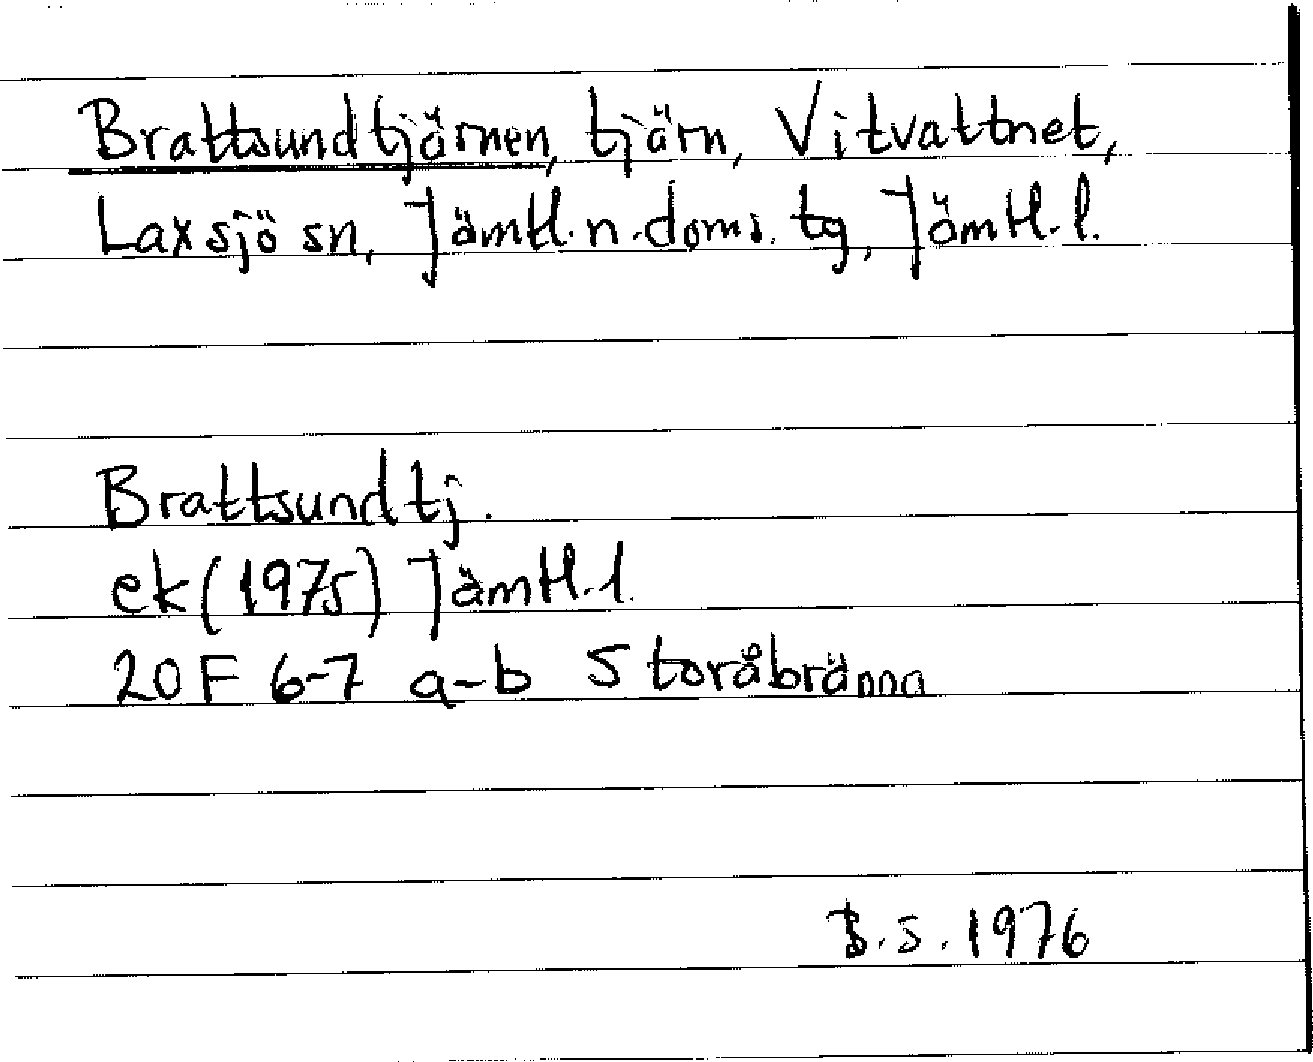 Brattsundtjärnen, tjärn, Vitvattnet,
Laxsjö sn, Jämtl. n. doms. tg, Jämtl. l.
Brattsundtj.
ek (1975) Jämtl. l.
20 F 6-7 a-b Storåbränna
B.S. 1976